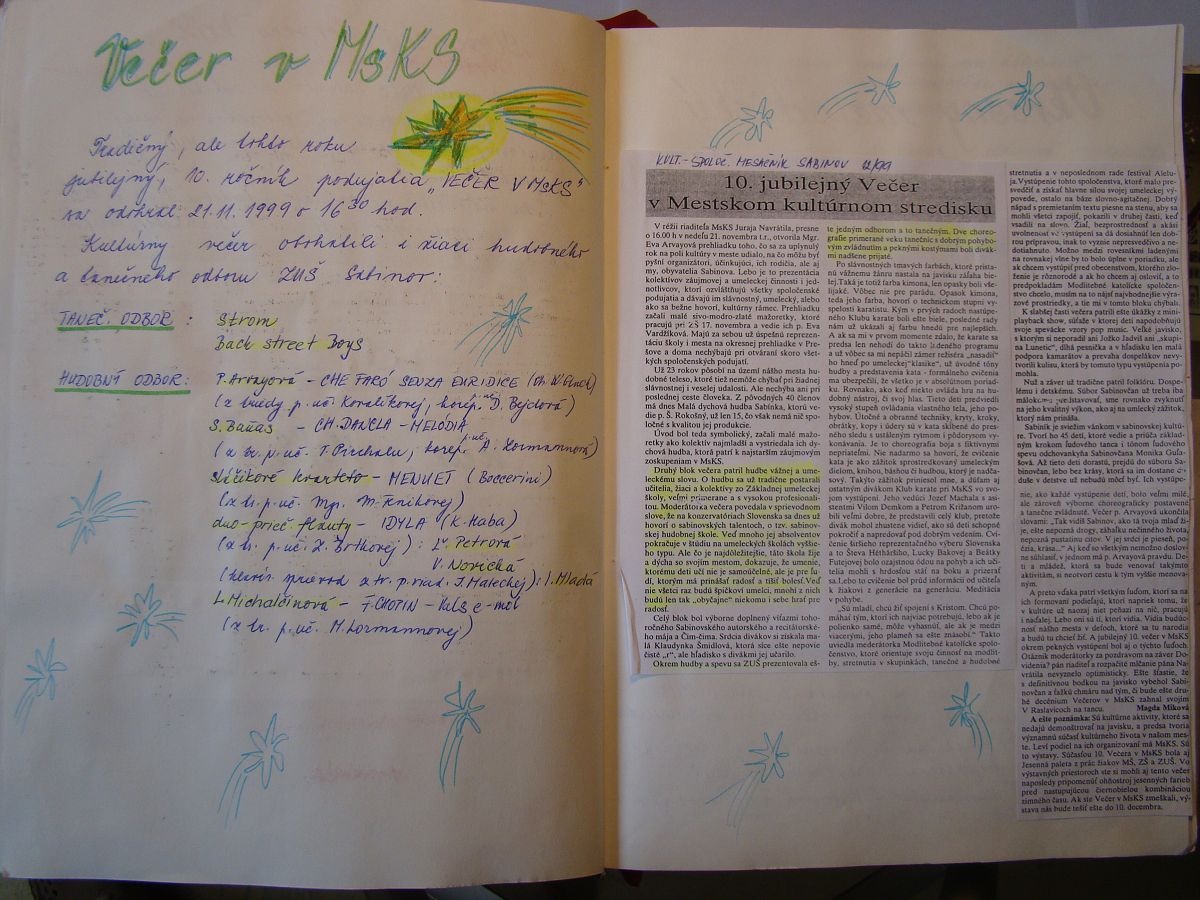 Večer v MsKS
Tradičný, ale tohto roku
jubilejný, 10. ročník podujatia „VEČER V MsKS“
sa odohral 21.11.1999 o 16³⁰ hod.
Kultúrny večer obohatili i žiaci hudobného
a tanečného odboru ZUŠ Sabinov:
TANEČ. ODBOR : Strom
Back street Boys
HUDOBNÝ ODBOR: P. Arvayová - CHE FARÓ SENZA EURIDICE (Ch. W. Gluck)
(z triedy p. uč. Koralikovej, korep. D. Bejdová)
S. Baňas - CH. DANCLA - MELÓDIA
(z tr. p. uč. T. Pirchalu, korep. p. uč. A. Lormannová)
Sláčikové kvarteto - MENUET (Boccerini)
(z tr. p. uč. Mgr. M. Fenikovej)
duo-prieč. flauty - IDYLA (K. Haba)
(z tr. p. uč. Z. Brtkovej) : Ľ. Petrová
V. Novická
(klavír. sprievod z tr. p. riad. J. Matechej): I. Mladá
L. Michalčinová - F. CHOPIN - Vals e-mol
(z tr. p. uč. M. Lormannovej)
KULT.-SPOLOČ. MESAČNÍK SABINOV 12/99
10. jubilejný Večer
v Mestskom kultúrnom stredisku
V réžii riaditeľa MsKS Juraja Navrátila, presne
o 16.00 h v nedeľu 21. novembra t.r., otvorila Mgr.
Eva Arvayová prehliadku toho, čo sa za uplynulý
rok na poli kultúry v meste udialo, na čo môžu byť
pyšní organizátori, účinkujúci, ich rodičia, ale aj
my, obyvatelia Sabinova. Lebo je to prezentácia
kolektívov záujmovej a umeleckej činnosti i jed-
notlivcov, ktorí ozvláštňujú všetky spoločenské
podujatia a dávajú im slávnostný, umelecký, alebo
ako sa bežne hovorí, kultúrny rámec. Prehliadku
začali malé sivo-modro-zlaté mažoretky, ktoré
pracujú pri ZŠ 17. novembra a vedie ich p. Eva
Vardžíková. Majú za sebou už úspešnú reprezen-
táciu školy i mesta na okresnej prehliadke v Pre-
šove a doma nechýbajú pri otváraní skoro všet-
kých spoločenských podujatí.
Už 23 rokov pôsobí na území nášho mesta hu-
dobné teleso, ktoré tiež nemôže chýbať pri žiadnej
slávnostnej i veselej udalosti. Ale nechýba ani pri
poslednej ceste človeka. Z pôvodných 40 členov
má dnes Malá dychová hudba Sabinka, ktorú ve-
die p. Š. Rokošný, už len 15, čo však nemá nič spoloč-
né s kvalitou jej produkcie.
Úvod bol teda symbolický, začali malé mažo-
retky ako kolektív najmladší a vystriedala ich dy-
chová hudba, ktorá patrí k najstarším záujmovým
zoskupeniam v MsKS.
Druhý blok večera patril hudbe vážnej a ume-
leckému slovu. O hudbu sa už tradične postarali
učitelia, žiaci a kolektívy zo Základnej umeleckej
školy, veľmi primerane a s vysokou profesionali-
tou. Moderátorka večera povedala v sprievodnom
slove, že na konzervatóriách Slovenska sa dnes už
hovorí o sabinovských talentoch, o tzv. sabinov-
skej hudobnej škole. Veď mnoho jej absolventov
pokračuje v štúdiu na umeleckých školách vyššie-
ho typu. Ale čo je najdôležitejšie, táto škola žije
a dýcha so svojím mestom, dokazuje, že umenie,
ktorému deti učí nie je samoúčelné, ale je pre ľu-
dí, ktorým má prinášať radosť a tíšiť bolesť. Veď
nie všetci raz budú špičkoví umelci, mnohí z nich
budú len tak „obyčajne“ niekomu i sebe hrať pre
radosť.
Celý blok bol výborne doplnený víťazmi toho-
ročného Sabinovského autorského a recitátorské-
ho mája a Čim-čima. Srdcia divákov si získala ma-
lá Klaudynka Šmidlová, ktorá síce ešte nepovie
čisté „r“, ale hľadisko s divákmi jej učarilo.
Okrem hudby a spevu sa ZUŠ prezentovala eš-
te jedným odborom a to tanečným. Dve choreo-
grafie primerané veku tanečníc s dobrým pohybo-
vým zvládnutím a peknými kostýmami boli divá-
kmi nadšene prijaté.
Po slávnostných tmavých farbách, ktoré prista-
nú vážnemu žánru nastala na javisku záľaha bie-
lej. Taká je totiž farba kimona, len opasky boli vše-
lijaké. Vôbec nie pre parádu. Opasok kimona,
teda jeho farba, hovorí o technickom stupni vy-
spelosti karatistu. Kým v prvých radoch nastúpe-
ného Klubu karate boli ešte biele, posledné rady
nám už ukázali aj farbu hnedú pre najlepších.
A ak sa mi v prvom momente zdalo, že karate sa
predsa len nehodí do takto ladeného programu
a už vôbec sa mi nepáčil zámer režiséra „nasadiť“
ho hneď po umeleckej klasike“, už úvodné tóny
hudby a predstavenia kata - formálneho cvičenia
ma ubezpečili, že všetko je v absolútnom poriad-
ku. Rovnako, ako keď niekto ovláda hru na hu-
dobný nástroj, či svoj hlas. Tieto deti predviedli
vysoký stupeň ovládania vlastného tela, jeho po-
hybov. Útočné a obranné techniky, kryty, kroky,
obrátky, kopy i údery sú v kata skĺbené do pres-
ného sledu s ustáleným rytmom i pôdorysom vy-
konávania. Je to choreografia boja s fiktívnymi
nepriateľmi. Nie nadarmo sa hovorí, že cvičenie
kata je ako zážitok sprostredkovaný umeleckým
dielom, knihou, básňou či hudbou, ktorý je návo-
dom na život v zložitosti toho sveta, v ktorom
takýto zážitok priniesol mne, a dúfam aj
ostatným divákom Klub karate pri MsKS vo svo-
jom vystúpení. Jeho vedúci Jozef Machala s asi-
stentmi Vilom Domkom a Petrom Križanom uro-
bili veľmi dobre, že predstavili celý klub, pretože
divák mohol zhustene vidieť, ako sú deti schopné
pokročiť a napredovať pod dobrým vedením. Cvi-
čenie širšieho reprezentačného výberu Slovenska
a to Števa Héthársiho, Lucky Bakovej a Beátky
Futejovej bolo ozajstnou ódou na pohyb a ich uči-
telia mohli s hrdosťou stáť na boku a prizerať
sa. Lebo to cvičenie bol prúd informácií od učiteľa
k žiakovi z generácie na generáciu. Meditácia
v pohybe.
„Sú mladí, chcú žiť spojení s Kristom. Chcú po-
máhať tým, ktorí ich najviac potrebujú, lebo ak je
polienko samé, môže vyhasnúť, ale ak je medzi
viacerými, jeho plameň sa ešte znásobí.“ Takto
uviedla moderátorka Modlitebné katolícke spolo-
čenstvo, ktoré orientuje svoju činnosť na modlit-
by, stretnutia v skupinkách, tanečné a hudobné
stretnutia a v neposlednom rade festival Alelu-
ja. Vystúpenie tohto spoločenstva, ktoré malo pre-
svedčiť a získať hlavne silou svojej umeleckej vý-
povede, ostalo na báze slovno-agitačnej. Dobrý
nápad s premietaním textu piesne na stenu, aby sa
mohli všetci zapojiť, pokazili v druhej časti, keď
ju zvládli na slovo. Žiaľ, bezprostrednosť a akási
uvoľnenosť vo vystúpení sa dá dosiahnuť len dob-
rou prípravou, inak to vyznie nepresvedčivo a ne-
dotiahnuto. Možno medzi rovesníkmi ladenými
na rovnakej vlne by to bolo úplne v poriadku, ale
ak chcem vystúpiť pred obecenstvom, ktorého zlo-
ženie je rôznorodé a ak ho chcem aj osloviť, a to
predpokladám Modlitebné katolícke spoločen-
stvo chcelo, musím na to nájsť najvhodnejšie výra-
zové prostriedky, a tie mi v tomto bloku chýbali.
K slabšej časti večera patrili ešte ukážky z mini-
playback show, súťaže v ktorej deti napodobňujú
svoje spevácke vzory pop music. Veľké javisko,
s ktorým si neporadil ani Jožko Jadviš ani „skupi-
na Lunetic“, dlhá pesnička a v hľadisku len malá
podpora kamarátov a prevaha dospelákov nevy-
tvorili kulisu, ktorú by tomuto typu vystúpenia pat-
rila.
Nuž a záver už tradične patril folklóru. Dospe-
lému i detskému. Súbor Sabinovčan už treba iba
málokomu predstavovať, sme rovnako zvyknutí
na jeho kvalitný výkon, ako aj na umelecký zážitok,
ktorý nám prináša.
Sabiník je sviežim vánkom v sabinovskej kultú-
re. Tvorí ho 45 detí, ktoré vedie a priúča základ-
ným krokom ľudového tanca i tónom ľudového
spevu odchovankyňa Sabinovčana Monika Guľa-
šová. Až tieto deti dorastú, prejdú do súboru Sa-
binovčan, lebo bez krásy, ktorá sa im dostane do
duše v detstve už nebudú môcť žiť. Ich vystúpe-
nie, ako každé vystúpenie detí, bolo veľmi milé,
ale zároveň výborne choreograficky postavené
a tanečne zvládnuté. Večer p. Arvayová ukončila
slovami: „Tak vidíš Sabinov, ako tá tvoja mlaď ži-
je, ešte nepozná drogy, záhaľku nečinného života,
nepozná pustatinu citov. V jej srdci je pieseň, po-
ézia, krása...“ Aj keď so všetkým nemožno doslov-
ne súhlasiť, v jednom má p. Arvayová pravdu. De-
ti a mládež, ktorá sa bude venovať takýmto
aktivitám, si neotvorí cestu k tým vyššie menova-
ným.
A preto vďaka patrí všetkým ľuďom, ktorí sa na
ich formovaní podieľajú, ktorí napriek tomu, že
v kultúre už naozaj niet peňazí na nič, pracujú
i naďalej. Lebo oni sú tí, ktorí vidia. Vidia budúc-
nosť nášho mesta v deťoch, ktoré sa tu narodia
a budú tu chcieť žiť. A jubilejný 10. večer v MsKS
okrem pekných vystúpení bol aj o týchto ľuďoch.
Otáznik moderátorky za pozdravom na záver Do-
videnia? pán riaditeľ a rozpačité mlčanie pána Na-
vrátila nevyznelo optimisticky. Ešte šťastie, že
s definitívnou bodkou na javisko vybehol Sabi-
novčan a ťažkú chmáru nad tým, či bude ešte dru-
hé decénium Večerov v MsKS zahnal svojím
V Raslaviciach na tancu. Magda Miková
A ešte poznámka: Sú kultúrne aktivity, ktoré sa
nedajú demonštrovať na javisku, a predsa tvoria
významnú súčasť kultúrneho života v našom mes-
te. Leví podiel na ich organizovaní má MsKS. Sú
to výstavy. Súčasťou 10. Večera v MsKS bola aj
Jesenná paleta z prác žiakov MŠ, ZŠ a ZUŠ. Vo
výstavných priestoroch ste si mohli aj tento večer
naposledy pripomenúť ohňostroj jesenných farieb
pred nastupujúcou čiernobielou kombináciou
zimného času. Ak ste Večer v MsKS zmeškali, vý-
stava nás bude tešiť ešte do 10. decembra.